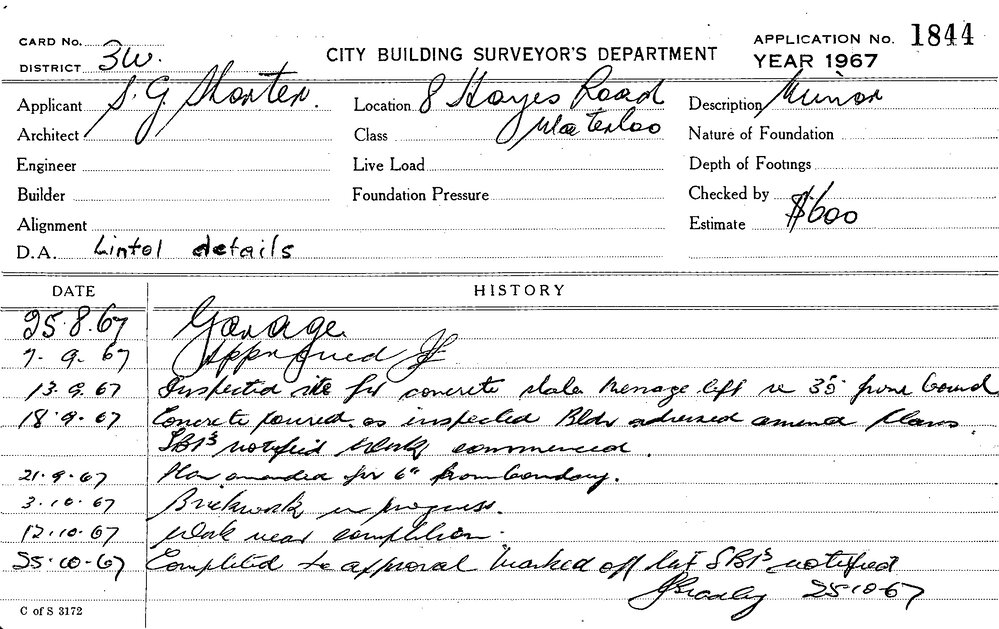 CARD No.
DISTRICT 3W.
CITY BUILDING SURVEYOR'S DEPARTMENT
APPLICATION No. 1844
YEAR 1967
Applicant S. G. Shorter.
Location 8 Hayes Road
Waterloo
Description Minor
Architect
Class
Nature of Foundation
Engineer
Live Load
Depth of Footings
Builder
Foundation Pressure
Checked by
Alignment
Estimate $600
D.A. Lintol details
DATE HISTORY
25.8.67 Garage
7. 9. 67 Approved
13.9.67 Inspected site for concrete slab. Message left re from bound
18.9.67 Concrete poured as inspected Bldr advised amend Plans.
notified Work commenced.
21.9.67 Plan amended for 6" from boundary.
3.10.67 Brickwork in progress.
12.10.67 Work near completion.
25.10.67 Completed to approval marked off notified
25.10.67
C of S 3172